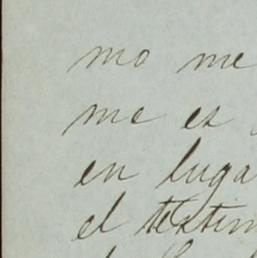 mo me
me es
en luga
el testim